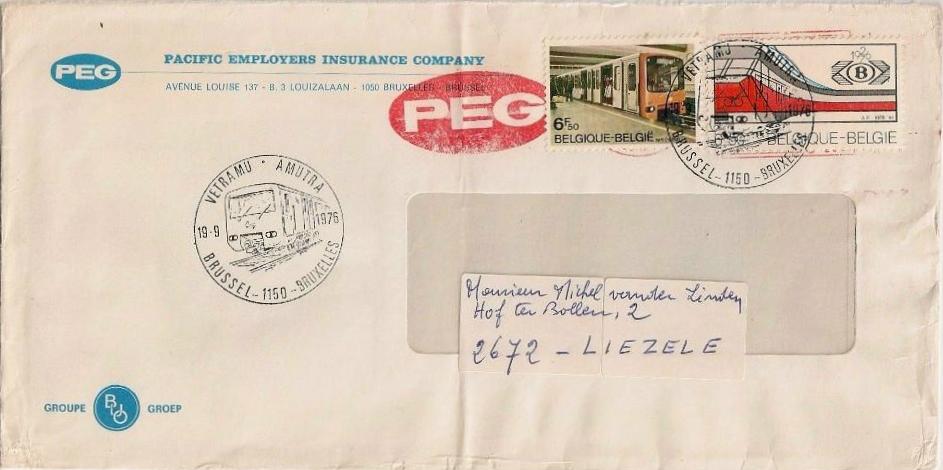 PEG
PACIFIC EMPLOYERS INSURANCE COMPANY
AVENUE LOUISE 137 - B. 3 LOUIZALAAN - 1050 BRUXELLES - BRUSSEL
PEG
6F50
BELGIQUE-BELGIË
1926
B
BELGIQUE-BELGIE
VETRAMU • AMUTRA
1976
BRUSSEL-1150-BRUXELLES
VETRAMU • AMUTRA
19-9 1976
BRUSSEL-1150-BRUXELLES
Monsieur Michel vander Linden
Hof ter Bollen, 2
2672 - LIEZELE
GROUPE BIJO GROEP